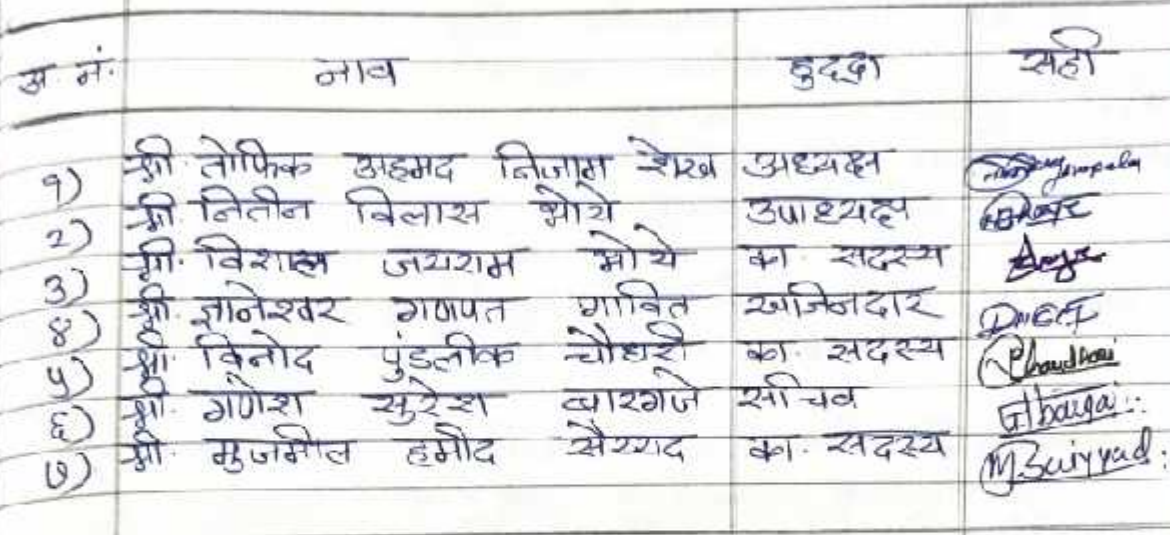 अ. नं. नाव हुद्दा सही
१) श्री. तोफिक अहमद निजाम शेख अध्यक्ष
२) श्री. नितीन विलास भोये उपाध्यक्ष
३) श्री. विशाल जयराम भोये का. सदस्य
४) श्री. ज्ञानेश्वर गणपत गावित खजिनदार
५) श्री. विनोद पुंडलीक चौधरी का. सदस्य Chaudhari
६) श्री. गणेश सुरेश बारगजे सचिव
७) श्री. मुजमील हमीद सैय्यद का. सदस्य M.Saiyyad.